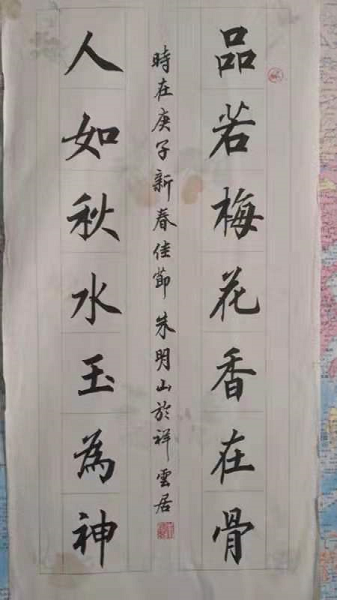 品若梅花香在骨
人如秋水玉為神
時在庚子新春佳節朱明山於祥雲居